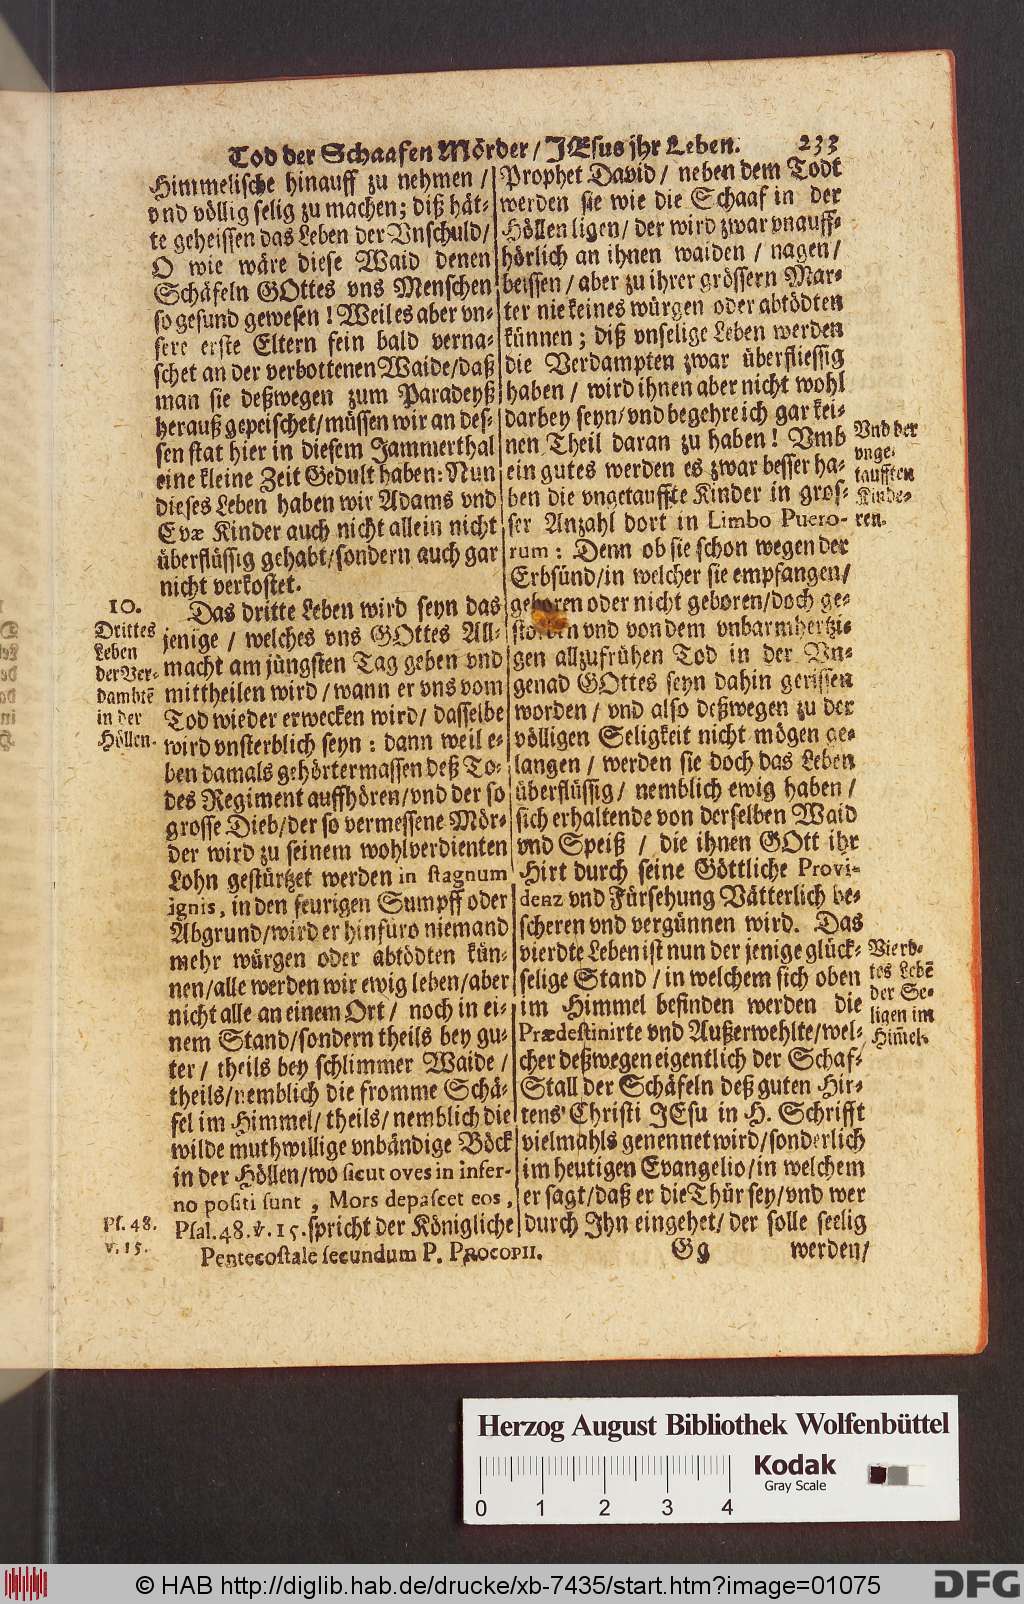 Tod der Schaafen Mörder / JEsus jhr Leben. 233
Himmelische hinauff zu nehmen /
vnd völlig selig zu machen; diß hät-
te geheissen das Leben der Vnschuld /
O wie wäre diese Waid denen
Schäfeln GOttes vns Menschen
so gesund gewesen ! Weil es aber vn-
sere erste Eltern fein bald verna-
schet an der verbottenen Waide / daß
man sie deßwegen zum Paradeyß
herauß gepeischet / müssen wir an des-
sen stat hier in diesem Jammerthal
eine kleine Zeit Gedult haben: Nun
dieses Leben haben wir Adams vnd
Evæ Kinder auch nicht allein nicht
überflüssig gehabt / sondern auch gar
nicht verkostet.
10.
Drittes
Leben
der Ver-
dambtē
in der
Höllen.
Das dritte Leben wird seyn das
jenige / welches vns GOttes All-
macht am jüngsten Tag geben vnd
mittheilen wird / wann er vns vom
Tod wieder erwecken wird / dasselbe
wird vnsterblich seyn : dann weil e-
ben damals gehörtermassen deß To-
des Regiment auffhören / vnd der so
grosse Dieb / der so vermessene Mör-
der wird zu seinem wohlverdienten
Lohn gestürtzet werden in stagnum
ignis, in den feurigen Sumpff oder
Abgrund / wird er hinfüro niemand
mehr würgen oder abtödten kün-
nen / alle werden wir ewig leben / aber
nicht alle an einem Ort / noch in ei-
nem Stand / sondern theils bey gu-
ter / theils bey schlimmer Waide /
theils / nemblich die fromme Schä-
fel im Himmel / theils / nemblich die
wilde muthwillige vnbändige Böck
in der Höllen / wo sicut oves in infer-
no positi sunt , Mors depascet eos ,
Ps. 48.
v. 15.
Psal. 48. v. 15. spricht der Königliche
Prophet David / neben dem Todt
werden sie wie die Schaaf in der
Höllen ligen / der wird zwar vnauff-
hörlich an ihnen waiden / nagen /
beissen / aber zu ihrer grössern Mar-
ter nie keines würgen oder abtödten
künnen ; diß vnselige Leben werden
die Verdampten zwar überfliessig
haben / wird ihnen aber nicht wohl
darbey seyn / vnd begehre ich gar kei-
nen Theil daran zu haben ! Vmb
ein gutes werden es zwar besser ha-
ben die vngetauffte Kinder in gros-
ser Anzahl dort in Limbo Puero-
rum : Denn ob sie schon wegen der
Erbsünd / in welcher sie empfangen /
geboren oder nicht geboren / doch ge-
storben vnd von dem vnbarmhertzi-
gen allzufrühen Tod in der Vn-
genad GOttes seyn dahin gerissen
worden / vnd also deßwegen zu der
völligen Seligkeit nicht mögen ge-
langen / werden sie doch das Leben
überflüssig / nemblich ewig haben /
sich erhaltende von derselben Waid
vnd Speiß / die ihnen GOtt ihr
Hirt durch seine Göttliche Provi-
denz vnd Fürsehung Vätterlich be-
scheren vnd vergünnen wird. Das
vierdte Leben ist nun der jenige glück-
selige Stand / in welchem sich oben
im Himmel befinden werden die
Prædestinirte vnd Außerwehlte / wel-
cher deßwegen eigentlich der Schaf-
Stall der Schäfeln deß guten Hir-
tens Christi JEsu in H. Schrifft
vielmahls genennet wird / sonderlich
im heutigen Evangelio / in welchem
er sagt / daß er die Thür sey / vnd wer
durch Jhn eingehet / der solle seelig
Vnd der
vnge-
taufften
Kinde-
ren.
Vierd-
tes Lebē
der Se-
ligen im
Him̄el.
Pentecostale secundum P. PROCOPII. Gg werden /
Herzog August Bibliothek Wolfenbüttel
Kodak
Gray Scale
0 1 2 3 4
© HAB http://diglib.hab.de/drucke/xb-7435/start.htm?image=01075
DFG